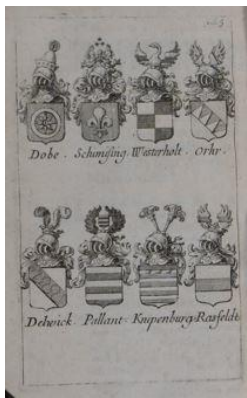 Dobe. Schenising. Westerholt. Orhr.
Delwick. Pallant. Knipenburg. Rasfeldt